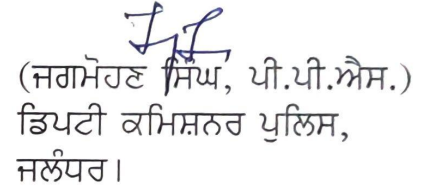 (ਜਗਮੋਹਣ ਸਿੰਘ, ਪੀ.ਪੀ.ਐਸ.)
ਡਿਪਟੀ ਕਮਿਸ਼ਨਰ ਪੁਲਿਸ,
ਜਲੰਧਰ।